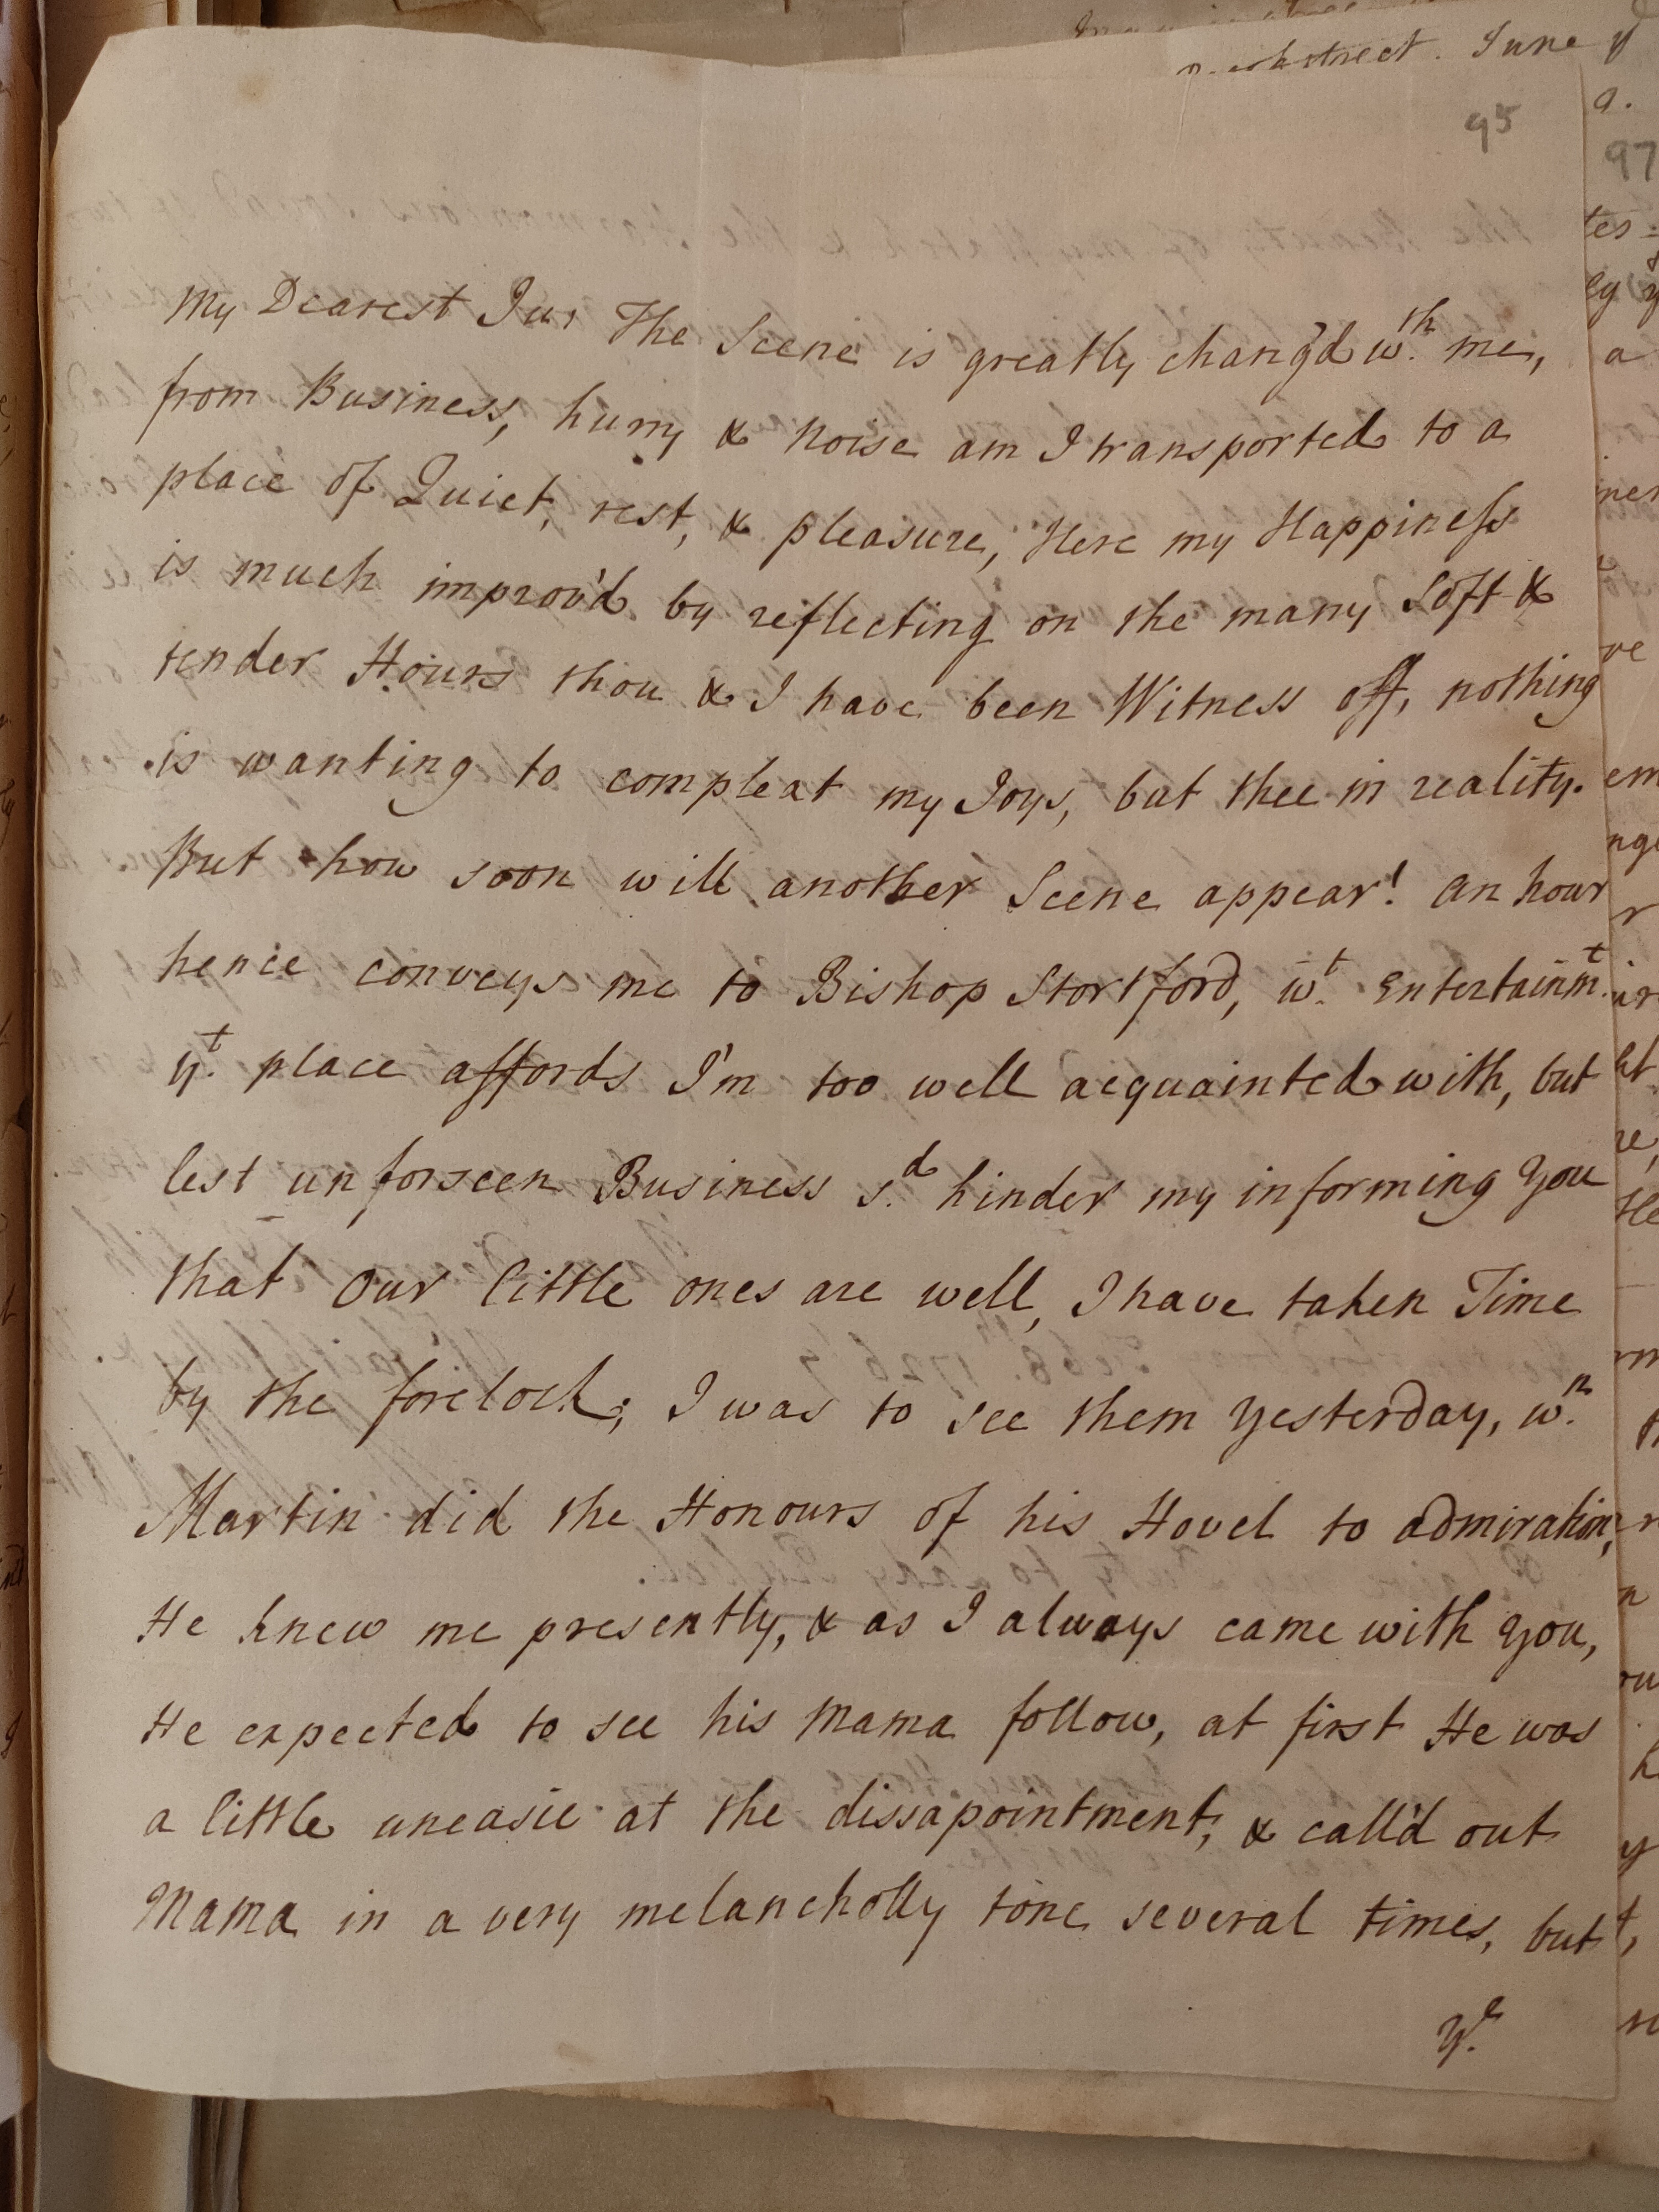 95
My Dearest Ju, The Scene is greatly chang'd w.th me,
from Business, hurry & Noise am I transported to a
place of Quiet, rest, & pleasure, Here my Happiness
is much improv'd by reflecting on the many Soft &
tender Hours thou & I have been Witness off, nothing
is wanting to compleat my Joys, but thee in reality.
But how soon will another Scene appear! an hour
hence conveys me to Bishop Stortford, w.t Entertainm.t
y.t place affords I'm too well acquainted with, but
lest unforseen Business s.d hinder my informing You
that Our little ones are well, I have taken Time
by the forelock; I was to see them yesterday, w.n
Martin did the Honours of his Hovel to admiration,
He knew me presently, & as I always came with You,
He expected to see his Mama follow, at first He was
a little uneasie at the dissapointment, & call'd out
Mama in a very melancholly tone several times, but
y.e
June
97